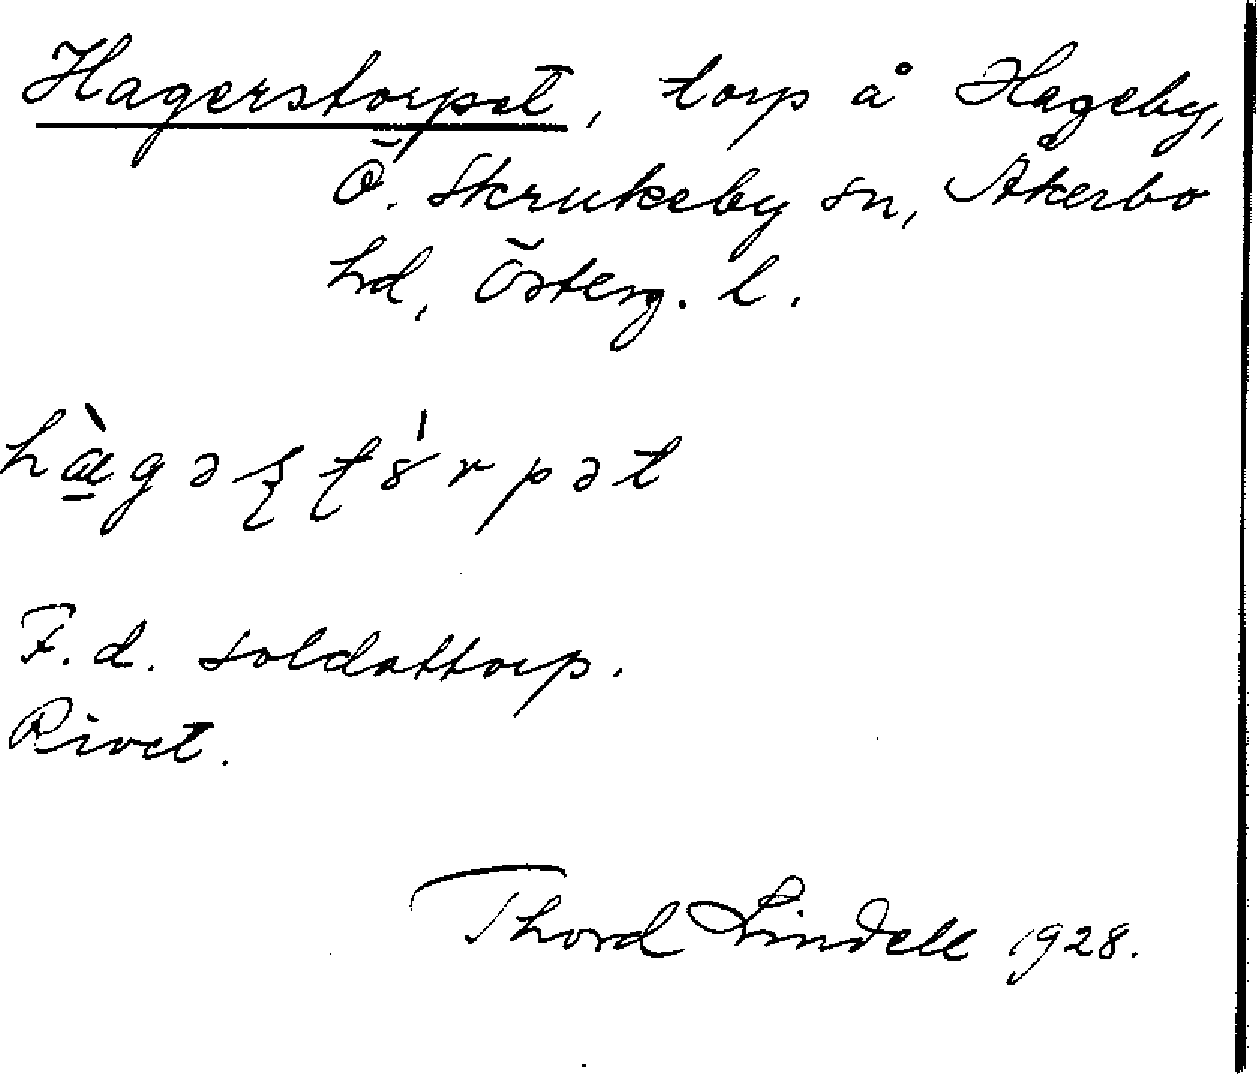 Hagerstorpet, torp å Hageby,
Ö. Skrukeby sn, Åkerbo
hd, Österg. l.
F.d. soldattorp.
Rivet.
Thord Lindell 1928.